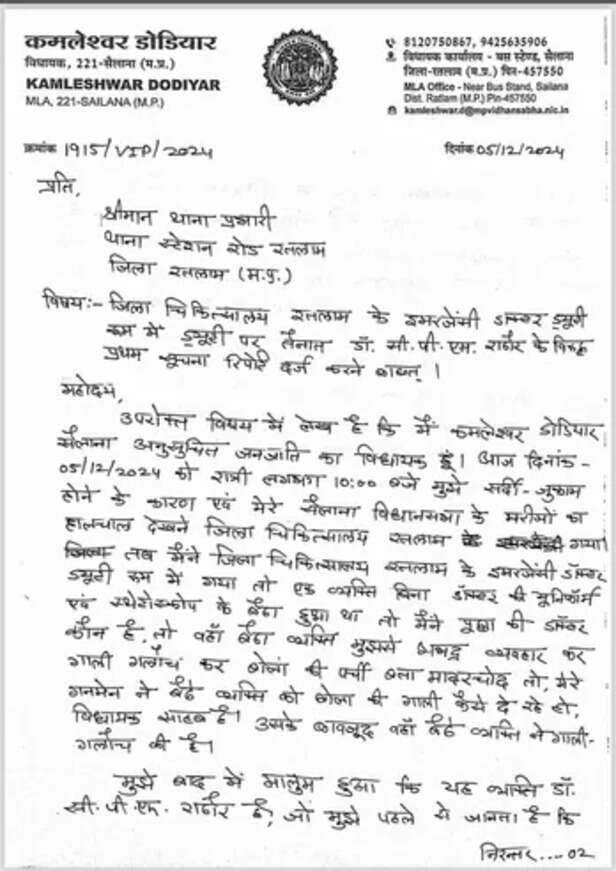 कमलेश्वर डोडियार
विधायक, 221-सैलाना (म.प्र.)
KAMLESHWAR DODIYAR
MLA, 221-SAILANA (M.P.)
8120750867, 9425635906
विधायक कार्यालय - बस स्टेण्ड, सैलाना
जिला-रतलाम (म.प्र.) पिन-457550
MLA Office - Near Bus Stand, Sailana
Dist. Ratlam (M.P.) Pin-457550
kamleshwar.d@mpvidhansabha.nic.in
क्रमांक 1915/VIP/2024
दिनांक 05/12/2024
प्रति,
श्रीमान थाना प्रभारी
थाना स्टेशन रोड रतलाम
जिला रतलाम (म.प्र.)
विषय:- जिला चिकित्सालय रतलाम के इमरजेंसी डॉक्टर ड्यूटी
रूम में ड्यूटी पर तैनात डॉ. सी.पी.एस. राठौर के विरूद्ध
प्रथम सूचना रिपोर्ट दर्ज करने बाबत् ।
महोदय,
उपरोक्त विषय में लेख है कि मैं कमलेश्वर डोडियार
सैलाना अनुसुचित जनजाति का विधायक हूँ। आज दिनांक-
05/12/2024 को रात्री लगभग 10:00 बजे मुझे सर्दी-जुकाम
होने के कारण एवं मेरे सैलाना विधानसभा के मरीजों का
हालचाल देखने जिला चिकित्सालय रतलाम गया।
तब मैंने जिला चिकित्सालय रतलाम के इमरजेंसी डॉक्टर
ड्यूटी रूम में गया तो एक व्यक्ति बिना डॉक्टर की यूनिफॉर्म
एवं स्थेटोस्कोप के बैठा हुआ था तो मैंने पूछा की डॉक्टर
कौन है, तो वहाँ बैठा व्यक्ति मुझसे अभद्र व्यवहार कर
गाली गलौच कर बोला की पर्ची बता मादरचोद तो, मेरे
गनमेन ने बैठे व्यक्ति को बोला की गाली कैसे दे रहे हो,
विधायक साहब है। उसके बावजूद वहाँ बैठे व्यक्ति ने गाली-
गलौच की है।
मुझे बाद में मालुम हुआ कि यह व्यक्ति डॉ.
सी.पी.एस. राठौर है, जो मुझे पहले से जानता है कि
निरन्तर....02